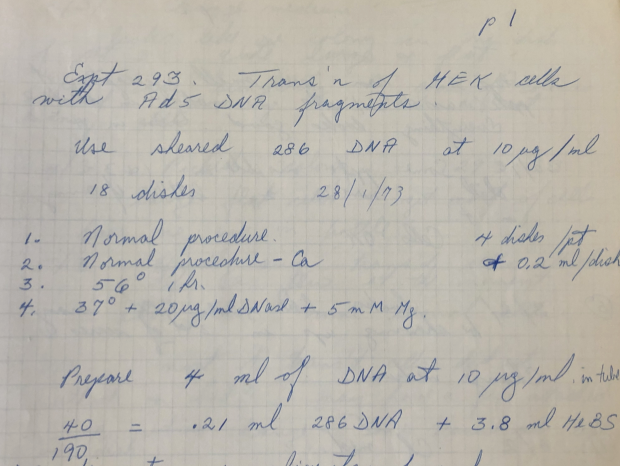 p 1
Expt 293. Trans'n of HEK cells
with Ad5 DNA fragments.
Use sheared 286 DNA at 10 µg/ml
18 dishes 28/1/73
1. Normal procedure. 4 dishes/pt
2. Normal procedure - Ca 0.2 ml/dish
3. 56° 1 hr.
4. 37° + 20 µg/ml DNase + 5 mM Mg.
Prepare 4 ml of DNA at 10 µg/ml. in tube
40/190 = .21 ml 286 DNA + 3.8 ml HeBS